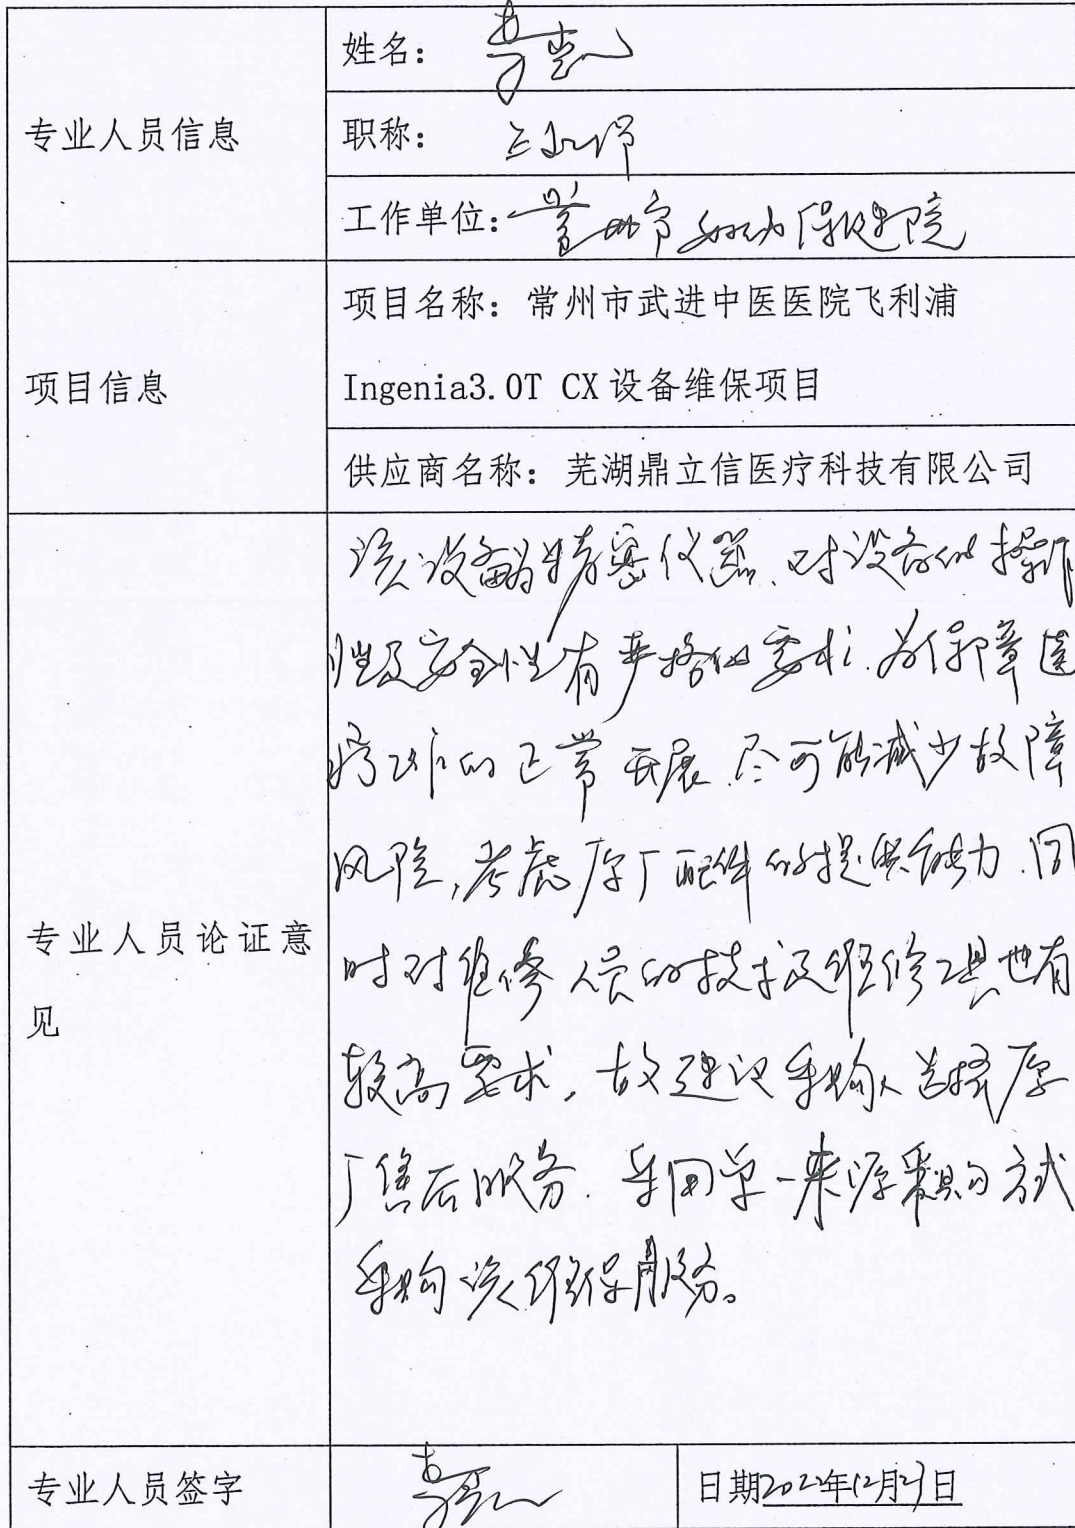 姓名：
专业人员信息
职称：工程师
工作单位：常州市妇幼保健院
项目名称：常州市武进中医医院飞利浦
项目信息
Ingenia3.0T CX 设备维保项目
供应商名称：芜湖鼎立信医疗科技有限公司
该设备为精密仪器、对设备的操作
性及安全性有严格的要求. 为保障医
疗工作的正常开展.尽可能减少故障
风险,考虑原厂配件的提供能力.同
专业人员论证意
时对维修人员的技术及维修工具也有
见
较高要求，故建议采购人选择原
厂售后服务. 采用单一来源采购方式
采购该维保服务。
专业人员签字
日期2022年12月 日